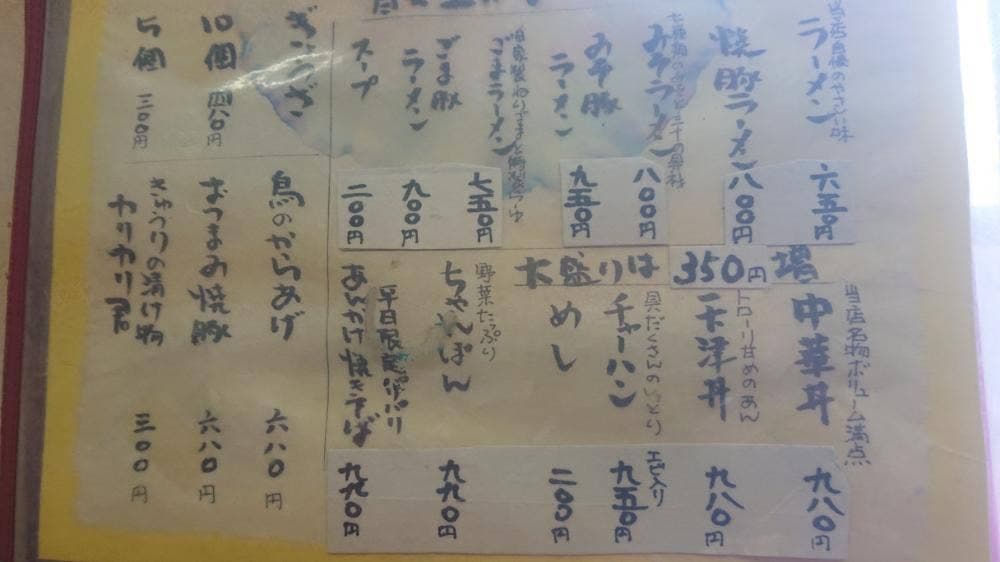 当店自慢のやさしい味
ラーメン 六五〇円
焼豚ラーメン 八〇〇円
みそラーメン 八〇〇円
みそ豚
ラーメン 九五〇円
ごまラーメン 七五〇円
ごま豚
ラーメン 九〇〇円
スープ 二〇〇円
大盛りは 350円 増
当店名物ボリューム満点
中華丼 九八〇円
トローリ甘めのあん
天津丼 九八〇円
具だくさんのしっとり
チャーハン エビ入り 九五〇円
めし 二〇〇円
野菜たっぷり
ちゃんぽん 九九〇円
平日限定
あんかけ焼きそば 九九〇円
ぎょうざ
10個 四八〇円
5個 三〇〇円
鳥のからあげ 六八〇円
おつまみ焼豚 六八〇円
きゅうりの漬け物
カリカリ君 三〇〇円